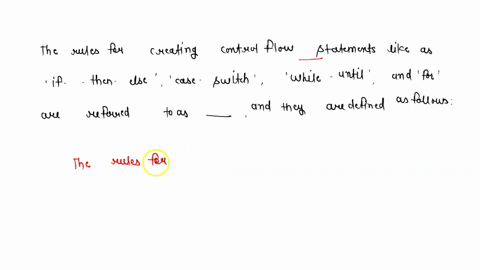 The rules for creating control flow statements like as
'if - then - else', 'case - switch', 'while - until', and 'for'
are referred to as ___, and they are defined as follows:
The rules for